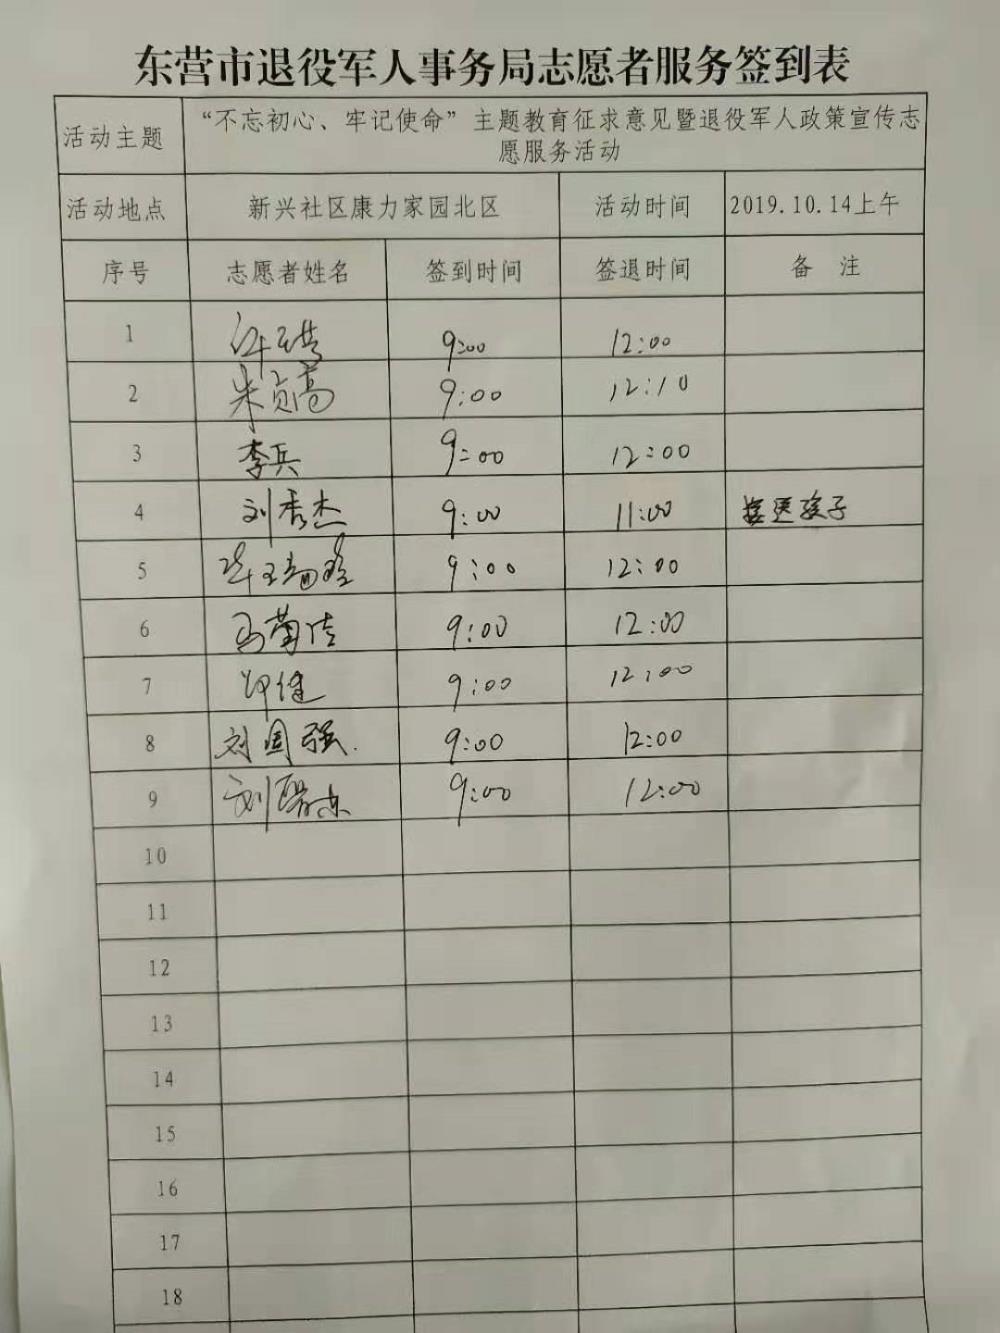 东营市退役军人事务局志愿者服务签到表
活动主题 “不忘初心、牢记使命”主题教育征求意见暨退役军人政策宣传志
愿服务活动
活动地点 新兴社区康力家园北区 活动时间 2019.10.14上午
序号 志愿者姓名 签到时间 签退时间 备 注
1 9:00 12:00
2 朱贞高 9:00 12:10
3 李兵 9:00 12:00
4 刘秀杰 9:00 11:00 接送孩子
5 9:00 12:00
6 9:00 12:00
7 9:00 12:00
8 刘国强. 9:00 12:00
9 9:00 12:00
10
11
12
13
14
15
16
17
18